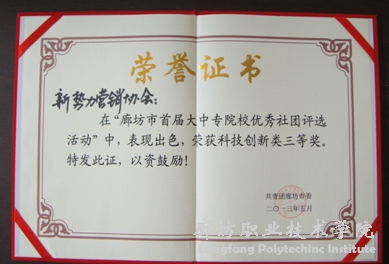 荣誉证书
新势力营销协会：
在“廊坊市首届大中专院校优秀社团评选
活动”中，表现出色，荣获科技创新类三等奖。
特发此证，以资鼓励！
共青团廊坊市委
二〇一三年五月
廊坊职业技术学院
Langfang Polytechinc Institute